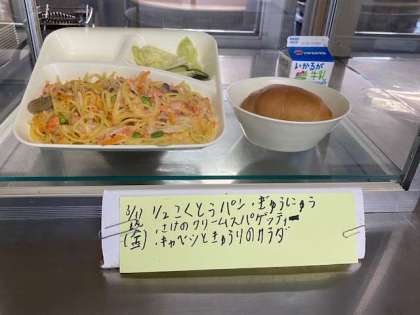 いかるが
牛乳
3/11 1/2こくとうパン・ぎゅうにゅう
・さけのクリームスパゲッティー
(金)・キャベツときゅうりのサラダ